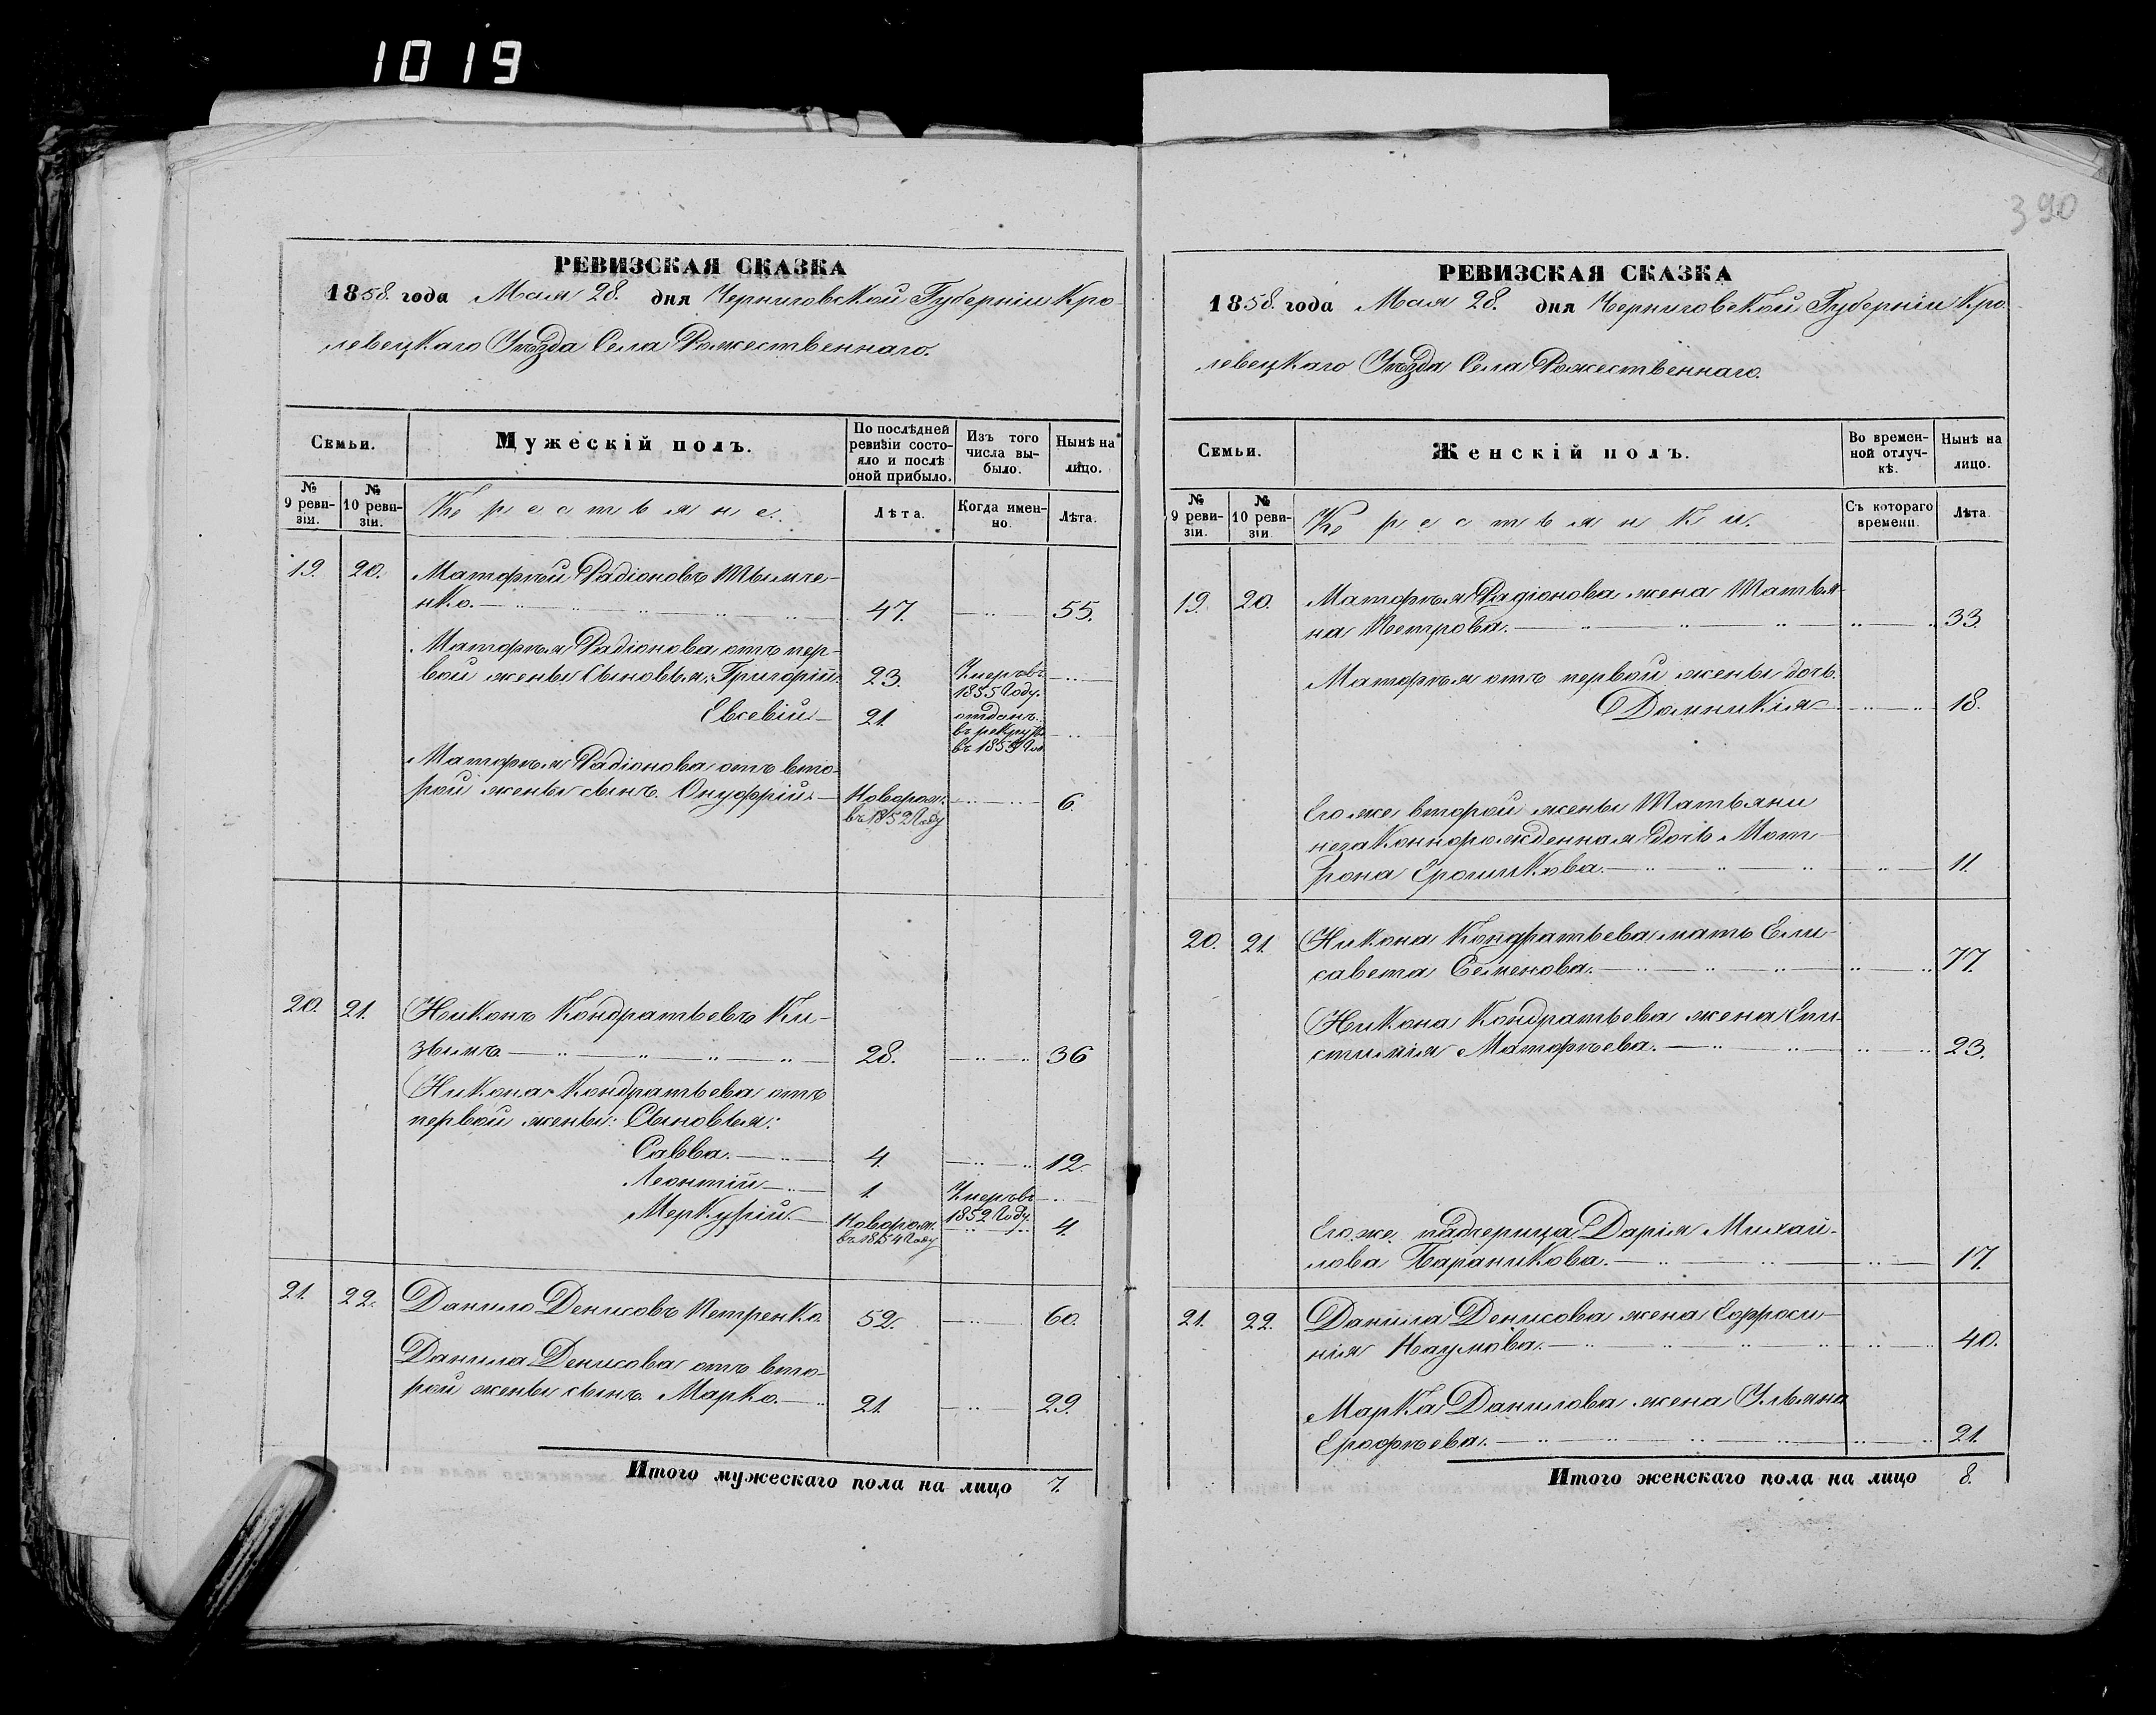 1019
390
РЕВИЗСКАЯ СКАЗКА
1858. года Мая 28. дня Черниговской Губерніи Кро-
левецкаго Уѣзда Села Рожественнаго.
Семьи.
Мужескій полъ.
По послѣдней ревизіи состояло и послѣ оной прибыло.
Изъ того числа выбыло.
Нынѣ на лицо.
№ 9 ревизіи.
№ 10 ревизіи.
Крестьяне.
Лѣта.
Когда именно.
Лѣта.
19. 20. Матфѣй Радіоновъ
нко. 47. 55.
Матфѣя Радіонова отъ пер-
вой жены сыновья: Григорій. 23. Умеръ въ 1855 году.
Евсевій 21. отданъ въ рекруты въ
Матфѣя Радіонова отъ вто-
рой жены сынъ Онуфрій. Новорож. въ 1852 году 6.
20. 21. Никонъ Кондратьевъ Ки-
зымъ 28. 36
Никона Кондратьева отъ
первой жены: Сыновья:
Савва. 4. 12.
Леонтій 1. Умеръ въ 1852 году.
Меркурій. Новорож. въ 1854 году 4.
21. 22. Данило Денисовъ Петренко 52. 60.
Данила Денисова отъ вто-
рой жены сынъ Марко. 21. 29.
Итого мужескаго пола на лицо 7.
РЕВИЗСКАЯ СКАЗКА
1858. года Мая 28. дня Черниговской Губерніи Кро-
левецкаго Уѣзда Села Рожественнаго.
Семьи.
Женскій полъ.
Во временной отлучкѣ.
Нынѣ на лицо.
№ 9 ревизіи.
№ 10 ревизіи.
Крестьянки.
Съ котораго времени.
Лѣта.
19. 20. Матфѣя Радіонова жена Татья-
на Петрова. 33.
Матфѣя отъ первой жены дочь.
Домникія 18.
Его же второй жены Татьяни
незаконнорожденная дочь Мот-
рона 11.
20. 21. Никона Кондратьева мать Ели-
савета Семенова. 77.
Никона Кондратьева жена Епи-
стимія Матфѣева. 23.
Его же падчерица Дарія Михай-
лова 17.
21. 22. Данила Денисова жена Ефроси-
нія Наумова. 40.
Марка Данилова жена Ульяна
Ерофѣева. 21.
Итого женскаго пола на лицо 8.